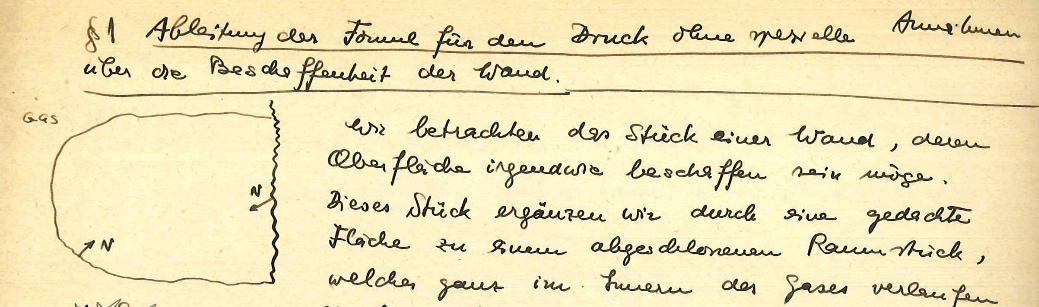 §1 Ableitung der Formel für den Druck ohne spezielle Annahmen
über die Beschaffenheit der Wand.
Gas
Wir betrachten das Stück einer Wand, deren
Oberfläche irgendwie beschaffen sein möge.
N
Dieses Stück ergänzen wir durch eine gedachte
N
Fläche zu einem abgeschlossenen Raumstück,
welches ganz im Innern des Gases verlaufen